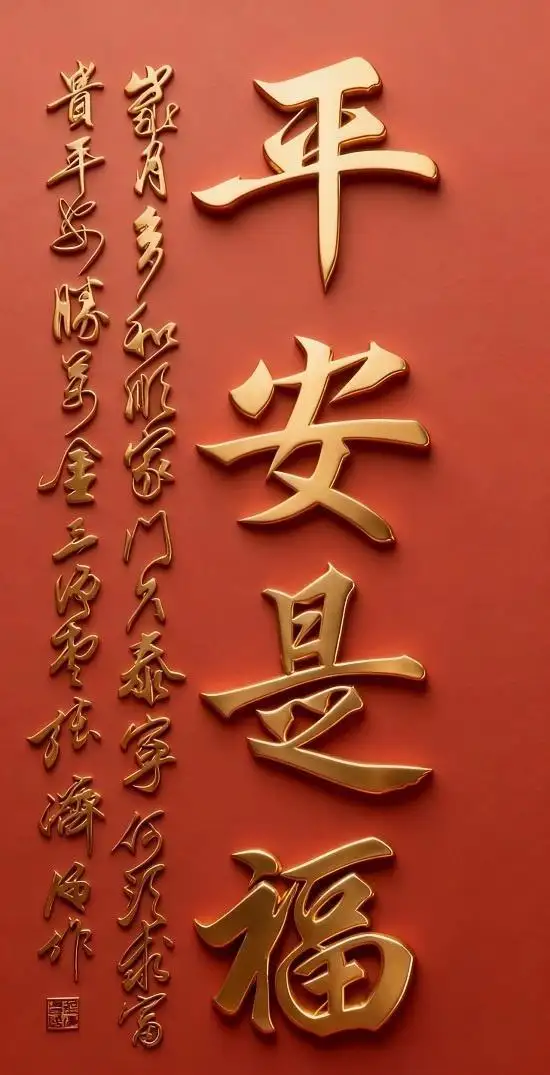 平安是福
歲月多和順家門久泰寧何須求富
貴平安勝萬金三張濟作